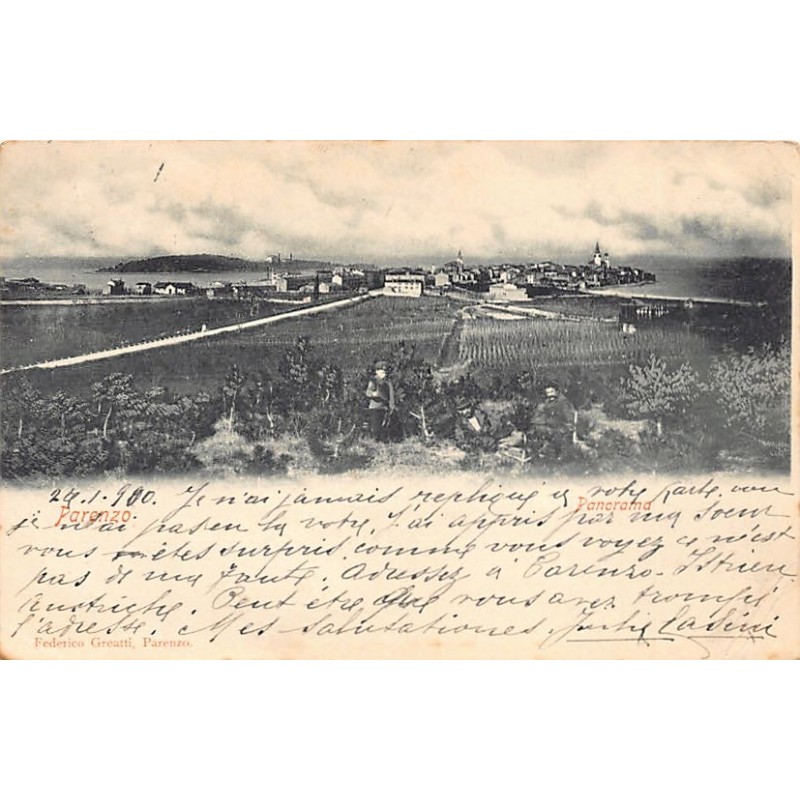 24.1.900. Je n'ai jamais repliqué à votre carte, non
Parenzo. Panorama
je n'ai pas eu la votre. J'ai appris par ma soeur
vous êtes surpris, comme vous voyez ce n'est
pas de ma faute. Adressez à Parenzo - Istrien
Austriche. Peut être que vous avez trompé
l'adresse. Mes salutationes. Casini
Federico Greatti, Parenzo.